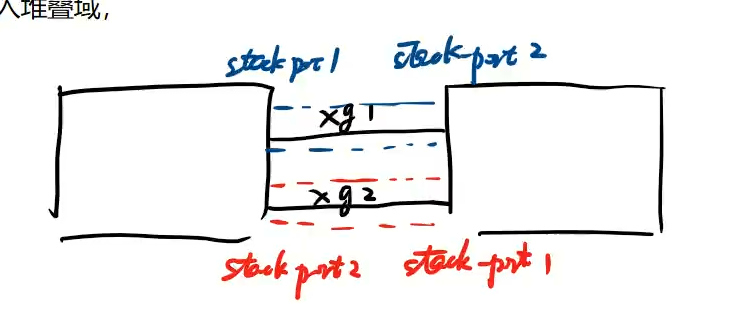 入堆叠域，
stack port 1 stack-port 2
xg 1
xg 2
stack port 2 stack-port 1